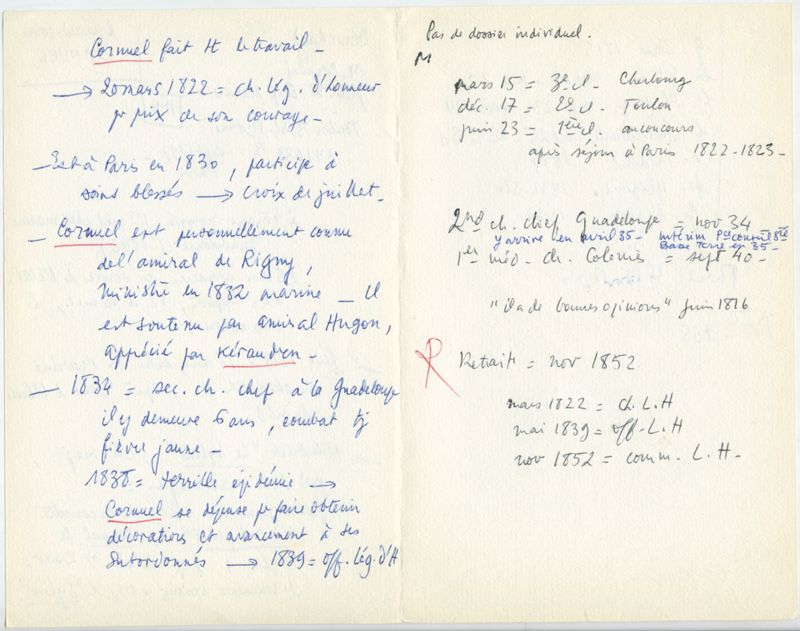 Cornuel fait tt le travail -
→ 20 mars 1822 = ch. lég. d'Honneur
pr prix de son courage -
- Est à Paris en 1830, participe à
soins blessés → croix de juillet -
- Cornuel est personnellement connu
de l'amiral de Rigny,
ministre en 1832 marine - Il
est soutenu par amiral Hugon,
apprécié par Kéraudren -
- 1834 = sec. ch. chef à la Guadeloupe
il y demeure 6 ans, combat tj
fièvre jaune -
1838 = terrible épidémie →
Cornuel se dépense pr faire obtenir
décorations et avancement à ses
subordonnés → 1839 = off. lég. d'H
Pas de dossier individuel.
M
mars 15 = 3e cl. Cherbourg
déc. 17 = 2e cl. Toulon
juin 23 = 1ère cl. au concours
après séjour à Paris 1822-1823 -
2nd ch. chief Guadeloupe = nov 34
y arrive en avril 35 - intérim Pt conseil Sté
Basse Terre en 35 -
1er méd. ch. Colonies = sept 40 -
"il a de bonnes opinions" juin 1816
R Retraite = nov 1852
mars 1822 = ch. L.H
mai 1839 = off. L.H
nov 1852 = comm. L.H -